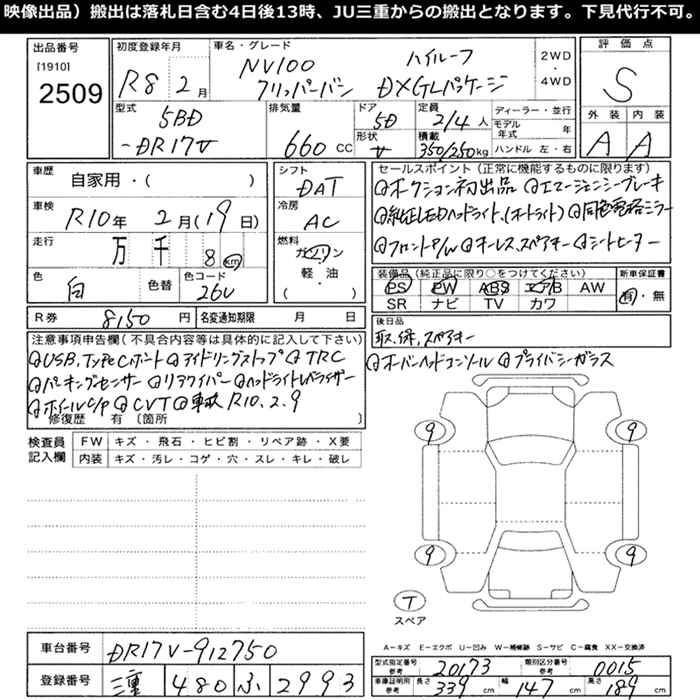 映像出品）搬出は落札日含む4日後13時、JU三重からの搬出となります。下見代行不可。
出品番号 [1910] 2509
初度登録年月 R8年 2月
車名・グレード NV100 クリッパーバン ハイルーフ DX GLパッケージ
2WD・4WD
評価点 S
外装 A 内装 A
型式 5BD-DR17V
排気量 660 CC
ドア 5D
形状 V
定員 2/4人
積載 350/250kg
ディーラー・並行
モデル年式 年
ハンドル 左・右
車歴 自家用・( )
車検 R10年 2月(19日)
走行 万 千 8 km
色 白 色替 色コード 26U
シフト DAT
冷房 AC
燃料 ガソリン 軽・油 ( )
R券 8150円 名変通知期限 月 日
セールスポイント（正常に機能するものに限ります）
◎オークション初出品 ◎エマージェンシーブレーキ
◎純正LEDハイライト、(オートライト) ◎同色電格ミラー
◎フロントP/W ◎キーレス、スペアキー ◎シートヒーター
装備品（純正品に限り○をつけてください）
PS PW ABS エアB AW
SR ナビ TV カワ
新車保証書 有・無
後日品
取、保、スペアキー
注意事項申告欄(不具合内容等は具体的に記入して下さい)
◎USB、TypeCポート ◎アイドリングストップ ◎TRC ◎オーバーヘッドコンソール ◎プライバシーガラス
◎パーキングセンサー ◎リアワイパー ◎ヘッドライトレベライザー
◎ホイールC/P ◎CVT ◎車検 R10.2.9
修復歴 有 〔箇所 〕
検査員記入欄
FW キズ・飛石・ヒビ割・リペア跡・X要
内装 キズ・汚レ・コゲ・穴・スレ・キレ・破レ
9 9
9 9
T
スペア
車台番号 DR17V-912750
登録番号 三重 480 ふ 2993
A―キズ E―エクボ U―凹み W―補修跡 S―サビ C―腐食 XX―交換済
型式指定番号 参考 20173 類別区分番号 参考 0015
車庫証明用 参考 長さ 339 cm 幅 147 cm 高さ 189 cm